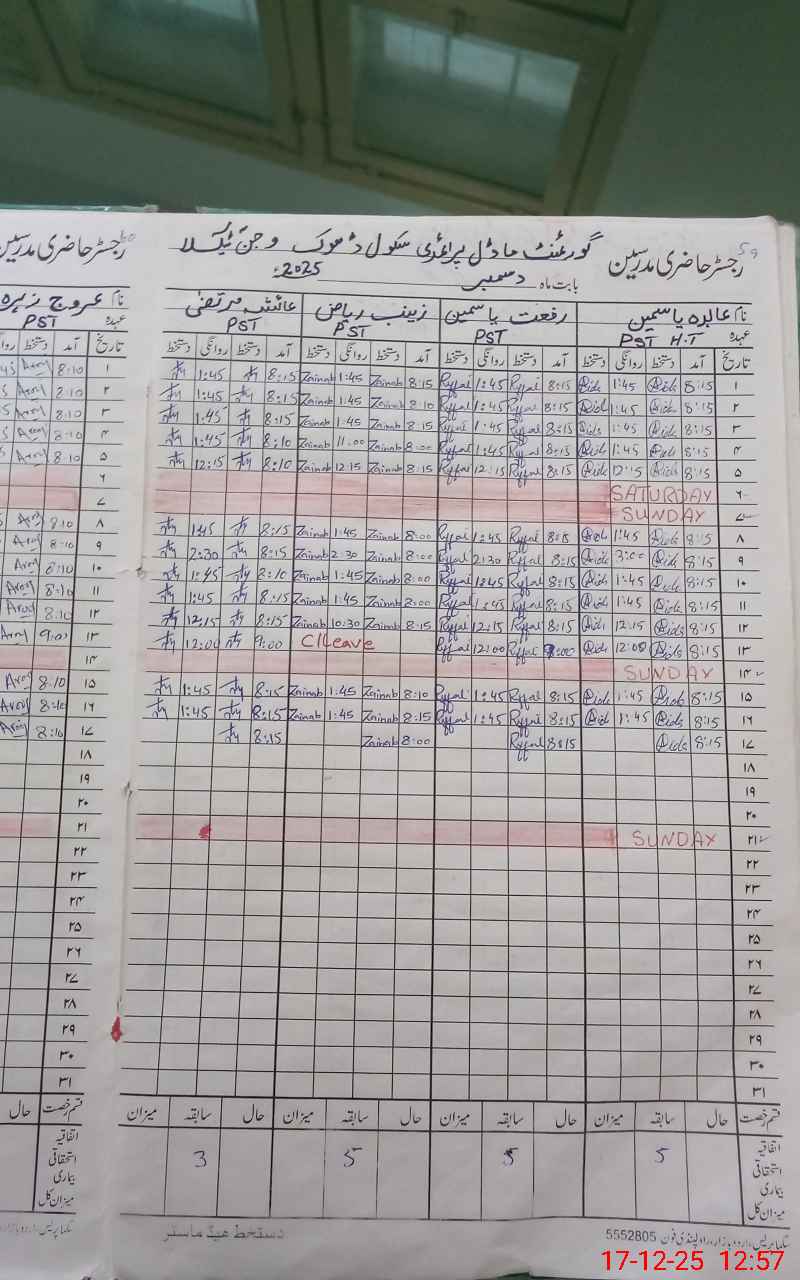 رجسٹر حاضری مدرسین گورنمنٹ ماڈل پرائمری سکول ڈھوک وجن ٹیکسلا 59
بابت ماہ دسمبر 2025ء
نام عابدہ یاسمین رفعت یاسمین زینب ریاض عائشہ مرتضیٰ
عہدہ PST H.T PST PST PST
تاریخ آمد دستخط روانگی دستخط آمد دستخط روانگی دستخط آمد دستخط روانگی دستخط آمد دستخط روانگی دستخط
۱ 8:15 1:45 8:15 1:45 8:15 Zainab 1:45 Zainab 8:15 1:45
۲ 8:15 1:45 8:15 1:45 8:10 Zainab 1:45 Zainab 8:15 1:45
۳ 8:15 1:45 8:15 1:45 8:15 Zainab 1:45 Zainab 8:15 1:45
۴ 8:15 1:45 8:15 1:45 8:00 Zainab 11:00 Zainab 8:10 1:45
۵ 8:15 12:15 8:15 12:15 8:15 Zainab 12:15 Zainab 8:10 12:15
۶ SATURDAY
۷ SUNDAY
۸ 8:15 1:45 8:15 1:45 8:00 Zainab 1:45 Zainab 8:15 1:45
۹ 8:15 3:00 8:15 2:30 8:00 Zainab 2:30 Zainab 8:15 2:30
۱۰ 8:15 1:45 8:15 1:45 8:00 Zainab 1:45 Zainab 8:10 1:45
۱۱ 8:15 1:45 8:15 1:45 8:00 Zainab 1:45 Zainab 8:15 1:45
۱۲ 8:15 12:15 8:15 12:15 8:15 Zainab 10:30 Zainab 8:15 12:15
۱۳ 8:15 12:00 9:00 12:00 C/Leave 9:00 12:00
۱۴ SUNDAY
۱۵ 8:15 1:45 8:15 1:45 8:10 Zainab 1:45 Zainab 8:15 1:45
۱۶ 8:15 1:45 8:15 1:45 8:15 Zainab 1:45 Zainab 8:15 1:45
۱۷ 8:15 8:15 8:00 Zainab 8:15
۱۸
۱۹
۲۰
۲۱ SUNDAY
۲۲
۲۳
۲۴
۲۵
۲۶
۲۷
۲۸
۲۹
۳۰
۳۱
قسم رخصت حال سابقہ میزان حال سابقہ میزان حال سابقہ میزان حال سابقہ میزان
اتفاقیہ
استحقاقی 5 5 5 3
بیماری
میزان کل
دستخط ہیڈ ماسٹر
5552805 اردو بازار، راولپنڈی فون
رجسٹر حاضری مدرسین
نام عروج زہرہ
عہدہ PST
تاریخ آمد دستخط
۱ 8:10
۲ 8:10
۳ 8:10
۴ 8:10
۵ 8:10
۶
۷
۸ 8:10
۹ 8:10
۱۰ 8:10
۱۱ 8:10
۱۲ 8:10
۱۳ 9:00
۱۴
۱۵ 8:10
۱۶ 8:10
۱۷ 8:10
۱۸
۱۹
۲۰
۲۱
۲۲
۲۳
۲۴
۲۵
۲۶
۲۷
۲۸
۲۹
۳۰
۳۱
قسم رخصت حال
اتفاقیہ
استحقاقی
بیماری
میزان کل
17-12-25 12:57